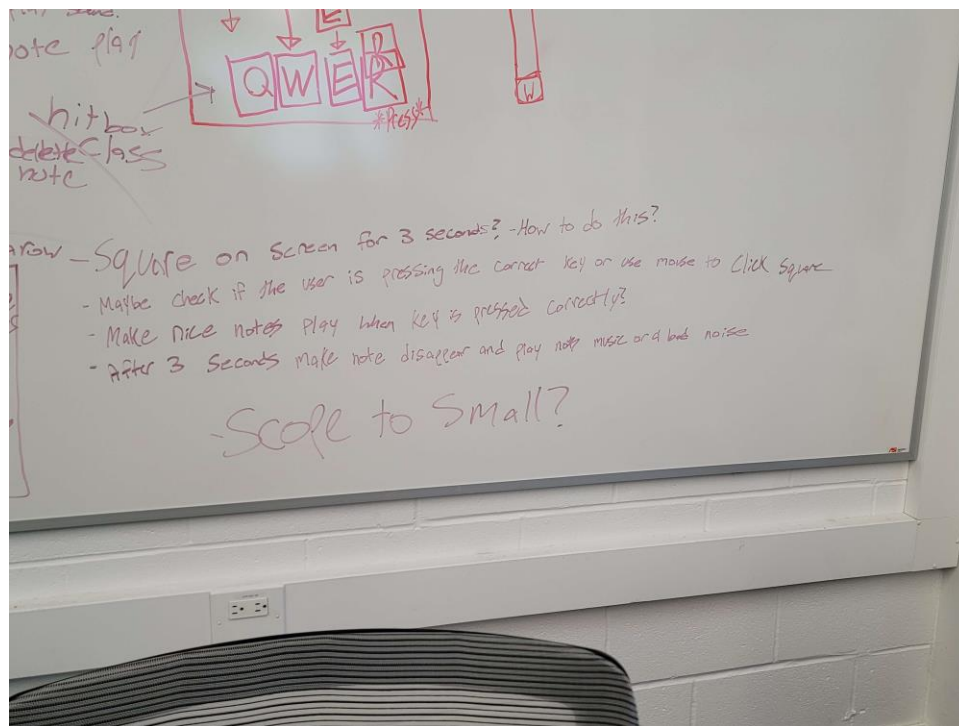 note play
E
Q W E R
R
W
*Press*
hitbox
delete class
note
- Square on screen for 3 seconds? - How to do this?
- Maybe check if the user is pressing the correct key or use mouse to click square
- Make nice notes play when key is pressed correctly?
- After 3 seconds make note disappear and play music or a bad noise
- Scope to small?